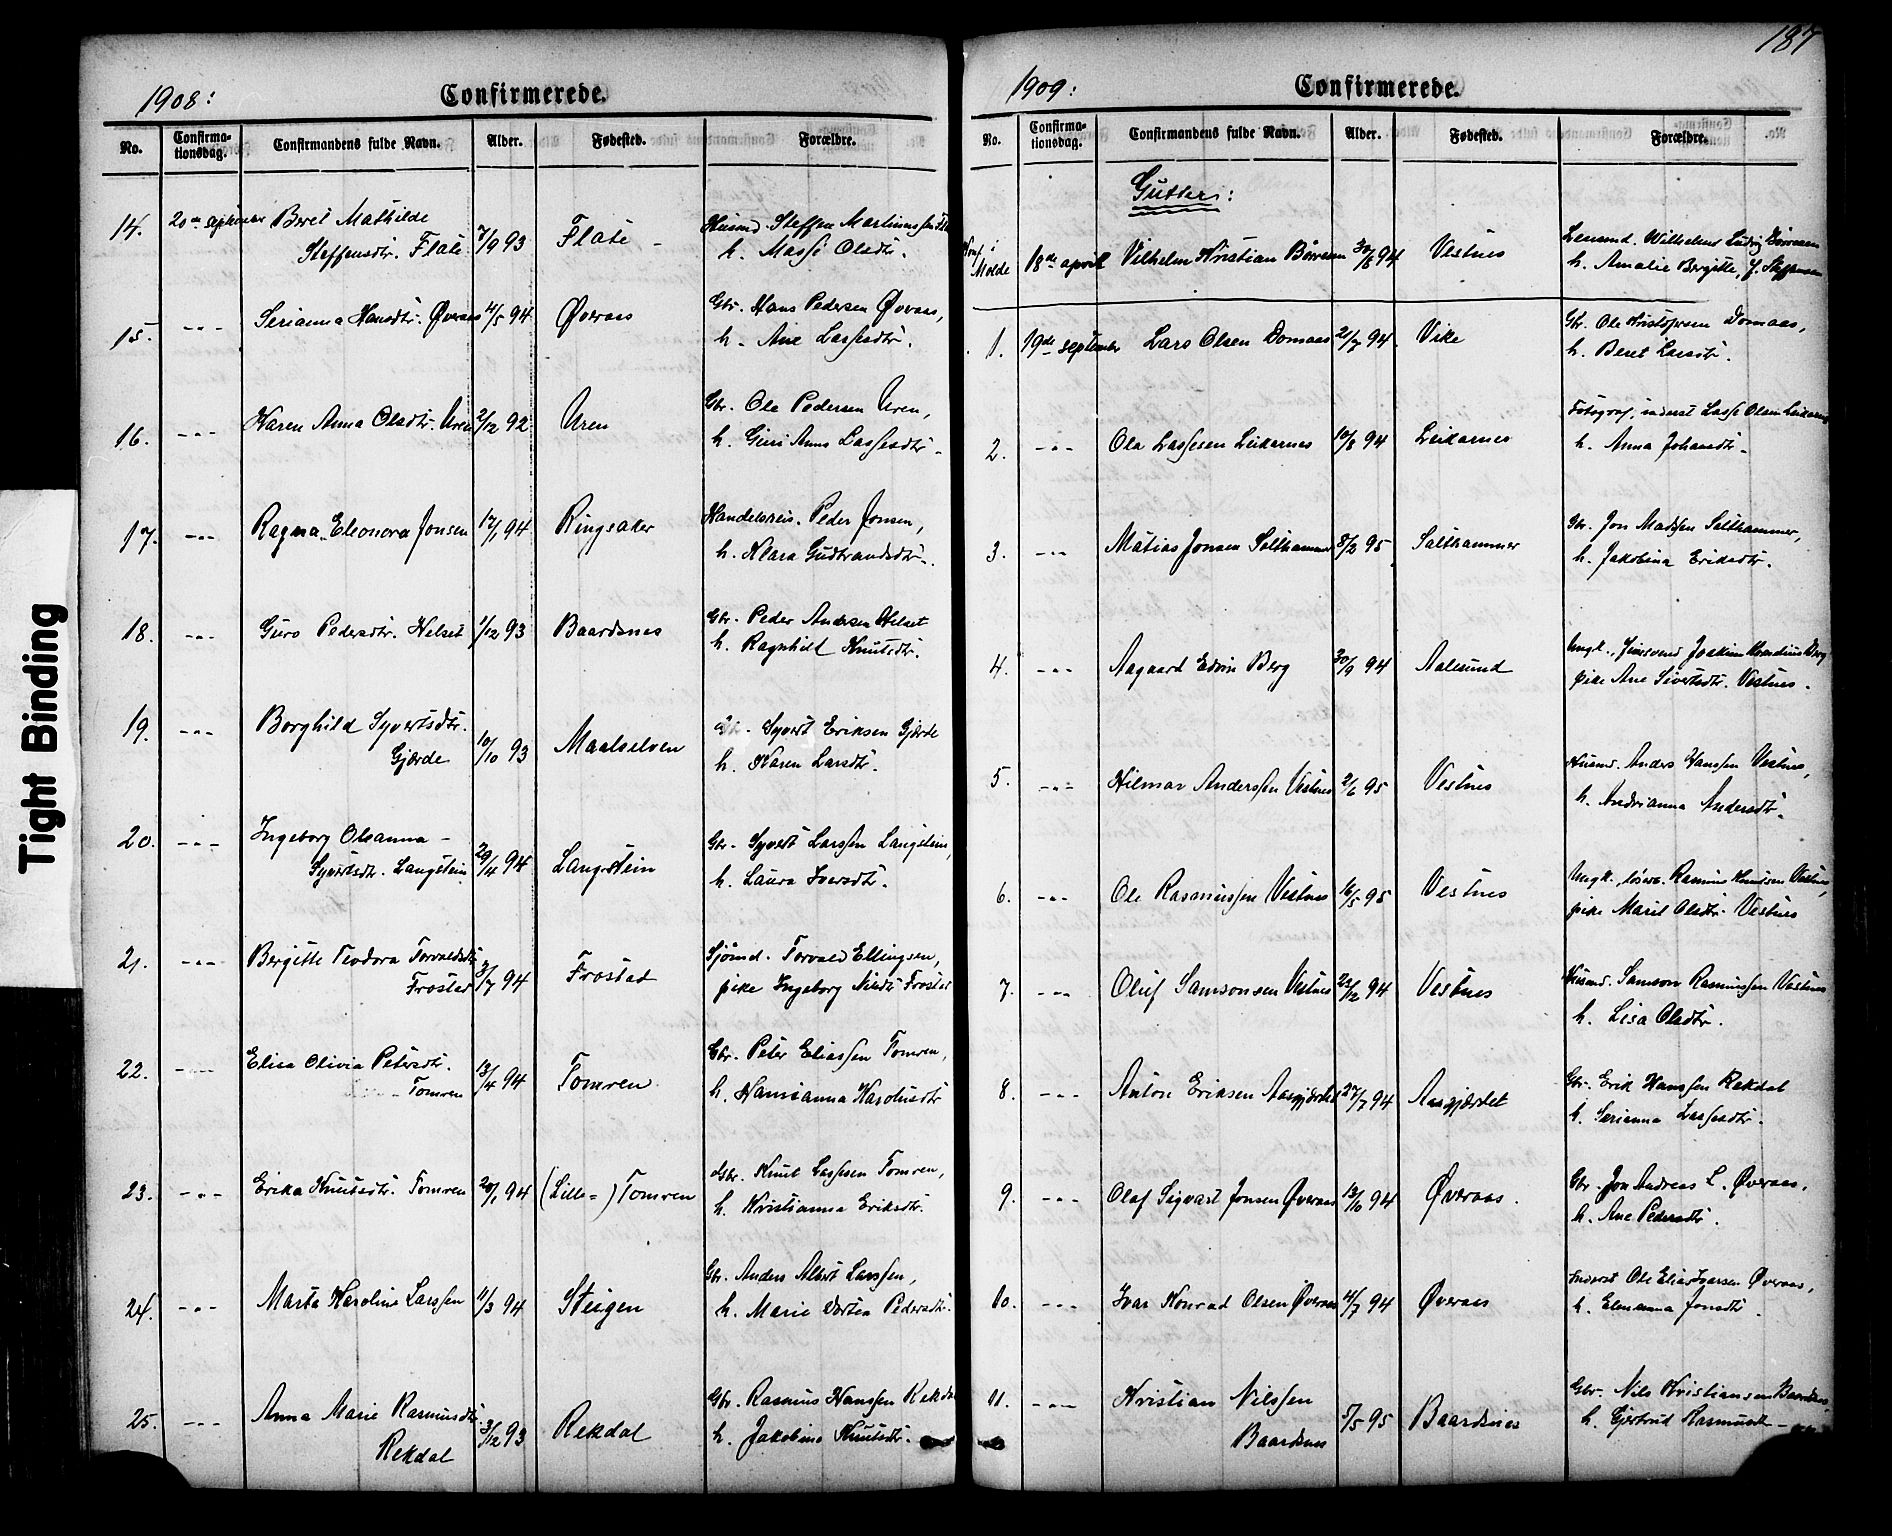 Tight Binding
1908: Confirmerede.
No. Confirmationsdag. Confirmandens fulde Navn. Alder. Fødested. Forældre.
14. 20de september Beret Mathilde 7/9 93 Flate Husmd. Steffen Martinussen
Steffensdtr. Flate h. Massi Olsdtr.
15. -"- Serianna Hansdtr. Øveraas 4/5 94 Øveraas Gbr. Hans Pedersen Øveraas,
h. Ane Lassesdtr.
16. -"- Karen Anna Olsdtr. Uren 2/12 92 Uren Gbr. Ole Pedersen Uren,
h. Guri Anna Lassesdtr.
17. -"- Ragna Eleonora Jonsen 17/1 94 Ringsaker Handelsreis. Peder Jonsen,
h. Klara Gudbrandsdtr.
18. -"- Guro Pedersdtr. Helset 1/12 93 Baardsnes Gbr. Peder Andersen Helset
h. Ragnhild Knutsdtr.
19. -"- Borghild Syvertsdtr. 10/10 93 Maalselven Gbr. Syvert Eriksen Gjærde
Gjærde h. Karen Larsdtr.
20. -"- Ingeborg Olsanna - 29/4 94 Langstein Gbr. Syvert Larssen Langstein,
Syvertsdtr. Langstein h. Laura Iversdtr.
21. -"- Bergitte Teodora Torvaldsdtr. 3/7 94 Frostad Sjømd. Torvald Ellingsen,
Frostad pike Ingeborg Nilsdtr Frostad
22. -"- Elisa Olivia Petersdtr. 13/4 94 Tomren Gbr. Peter Eliassen Tomren,
Tomren h. Hansianna Karolusdtr
23. -"- Erika Knutsdtr. Tomren 20/1 94 (Lille=) Tomren Gbr. Knut Lassesen Tomren,
h. Kristianna Eriksdtr.
24. -"- Marta Karoline Larssen 11/3 94 Steigen Gbr. Anders Albert Larssen,
h. Marie Dortea Pedersdtr.
25. -"- Anna Marie Rasmusdtr. 3/12 93 Rekdal Gbr. Rasmus Hanssen Rekdal
Rekdal h. Jakobine Knutsdtr.
187
1909: Confirmerede.
No. Confirmationsdag. Confirmandens fulde Navn. Alder. Fødested. Forældre.
Gutter:
Konf. i Molde 18de april Vilhelm Kristian Børresen 30/8 94 Vestnes Lensmd. Wilhelm Ludvig Børresen
h. Amalie Bergitte, f. Steffensen
1. 19de september Lars Olsen Domaas 21/7 94 Vike Gbr. Ole Kristofersen Domaas,
h. Beret Larsdtr.
2. -"- Ola Lassesen Leikarnes 10/8 94 Leikarnes Fotograf, inderst Lasse Olsen Leikarnes
h. Anna Johansdtr.
3. -"- Matias Jonsen Salthammer 8/2 95 Salthammer Gbr. Jon Madssen Salthammer,
h. Jakobina Eriksdtr.
4. -"- Aagaard Edvin Berg 30/9 94 Aalesund Ungk., Joakim Berg
pike Ane Sivertsdtr. Vestnes.
5. -"- Hilmar Anderssen Vestnes 2/6 95 Vestnes Husmd. Anders Hanssen Vestnes,
h. Andrianna Andersdtr.
6. -"- Ole Rasmussen Vestnes 16/5 95 Vestnes Ungk., Rasmus Knutsen Vestnes,
pike Marit Olsdtr. Vestnes
7. -"- Oluf Samsonsen Vestnes 22/12 94 Vestnes Husmd. Samson Rasmussen Vestnes
h. Lisa Olsdtr.
8. -"- Anton Eriksen Aasgjærdet 27/7 94 Aasgjærdet Gbr. Erik Hanssen Rekdal
h. Serianna Lassesdtr.
9. -"- Olaf Sigvart Jonsen Øveraas 13/10 94 Øveraas. Gbr. Jon Andreas L. Øveraas,
h. Ane Pedersdtr.
10. -"- Ivar Konrad Olsen Øveraas 4/7 94 Øveraas Inderst Ole Elias Ivarsen Øveraas,
h. Elenanna Jonsdtr.
11. -"- Kristian Nilssen 5/5 95 Baardsnes Gbr. Nils Kristiansen Baardsnes,
Baardsnes h. Gjertrud Rasmusdtr.